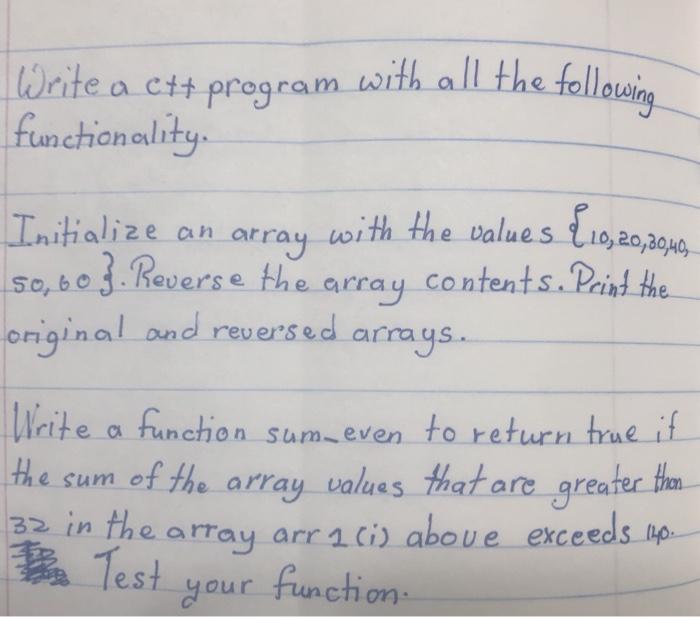 Write a c++ program with all the following
functionality.
Initialize an array with the values {10,20,30,40,
50,60}. Reverse the array contents. Print the
original and reversed arrays.
Write a function sum_even to return true if
the sum of the array values that are greater than
32 in the array arr1(i) above exceeds 140.
Test your function.